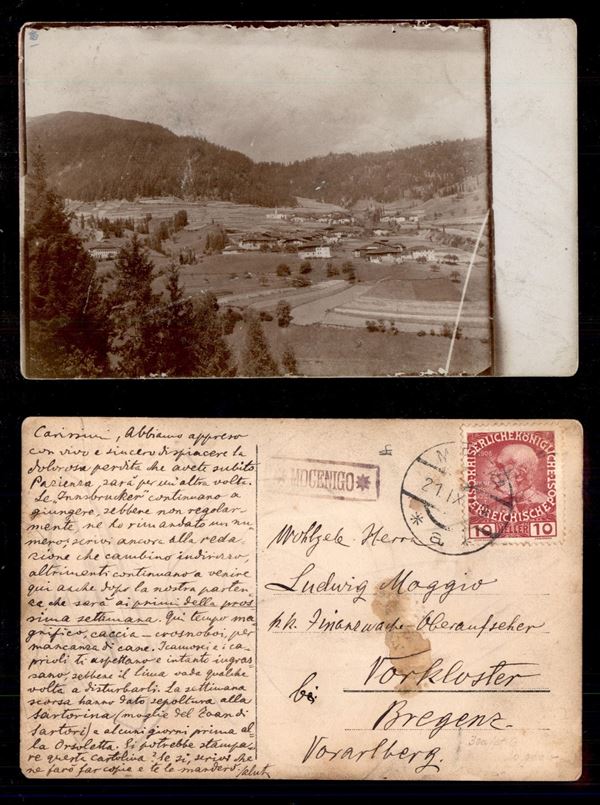 Carissimi, Abbiamo appreso
con vivo e sincero dispiacere la
dolorosa perdita che avete subito
Pazienza, sarà per un'altra volta.
Le "Innsbrucker" continuano a
giungere, sebbene non regolar-
mente, ne ho rimandato un nu-
mero e scrivi ancora alla reda-
zione che cambino indirizzo,
altrimenti continuano a venire
qui anche dopo la nostra parten-
za che sarà ai primi della pros-
sima settimana. Qui tempo ma-
gnifico, caccia per
mancanza di cane. I camosci e i ca-
prioli ti aspettano e intanto ingras-
sano, sebbene il vada qualche
volta a disturbarli. La settimana
scorsa hanno dato sepoltura alla
Sartorina (moglie del
Sartori) e alcuni giorni prima al-
la Orsoletta. Si potrebbe stampa-
re questa cartolina? Se sì, scrivi che
ne farò far copie e te le manderò. Saluti
MOCENIGO
21.IX
* a
KAISERLICHE KÖNIGLICHE
ÖSTERREICHISCHE POST
1908
10 HELLER 10
Wohlgeb. Herrn
Ludwig Moggio
k.k. Finanzwach-Oberaufseher
Vorkloster
bei
Bregenz
Vorarlberg.